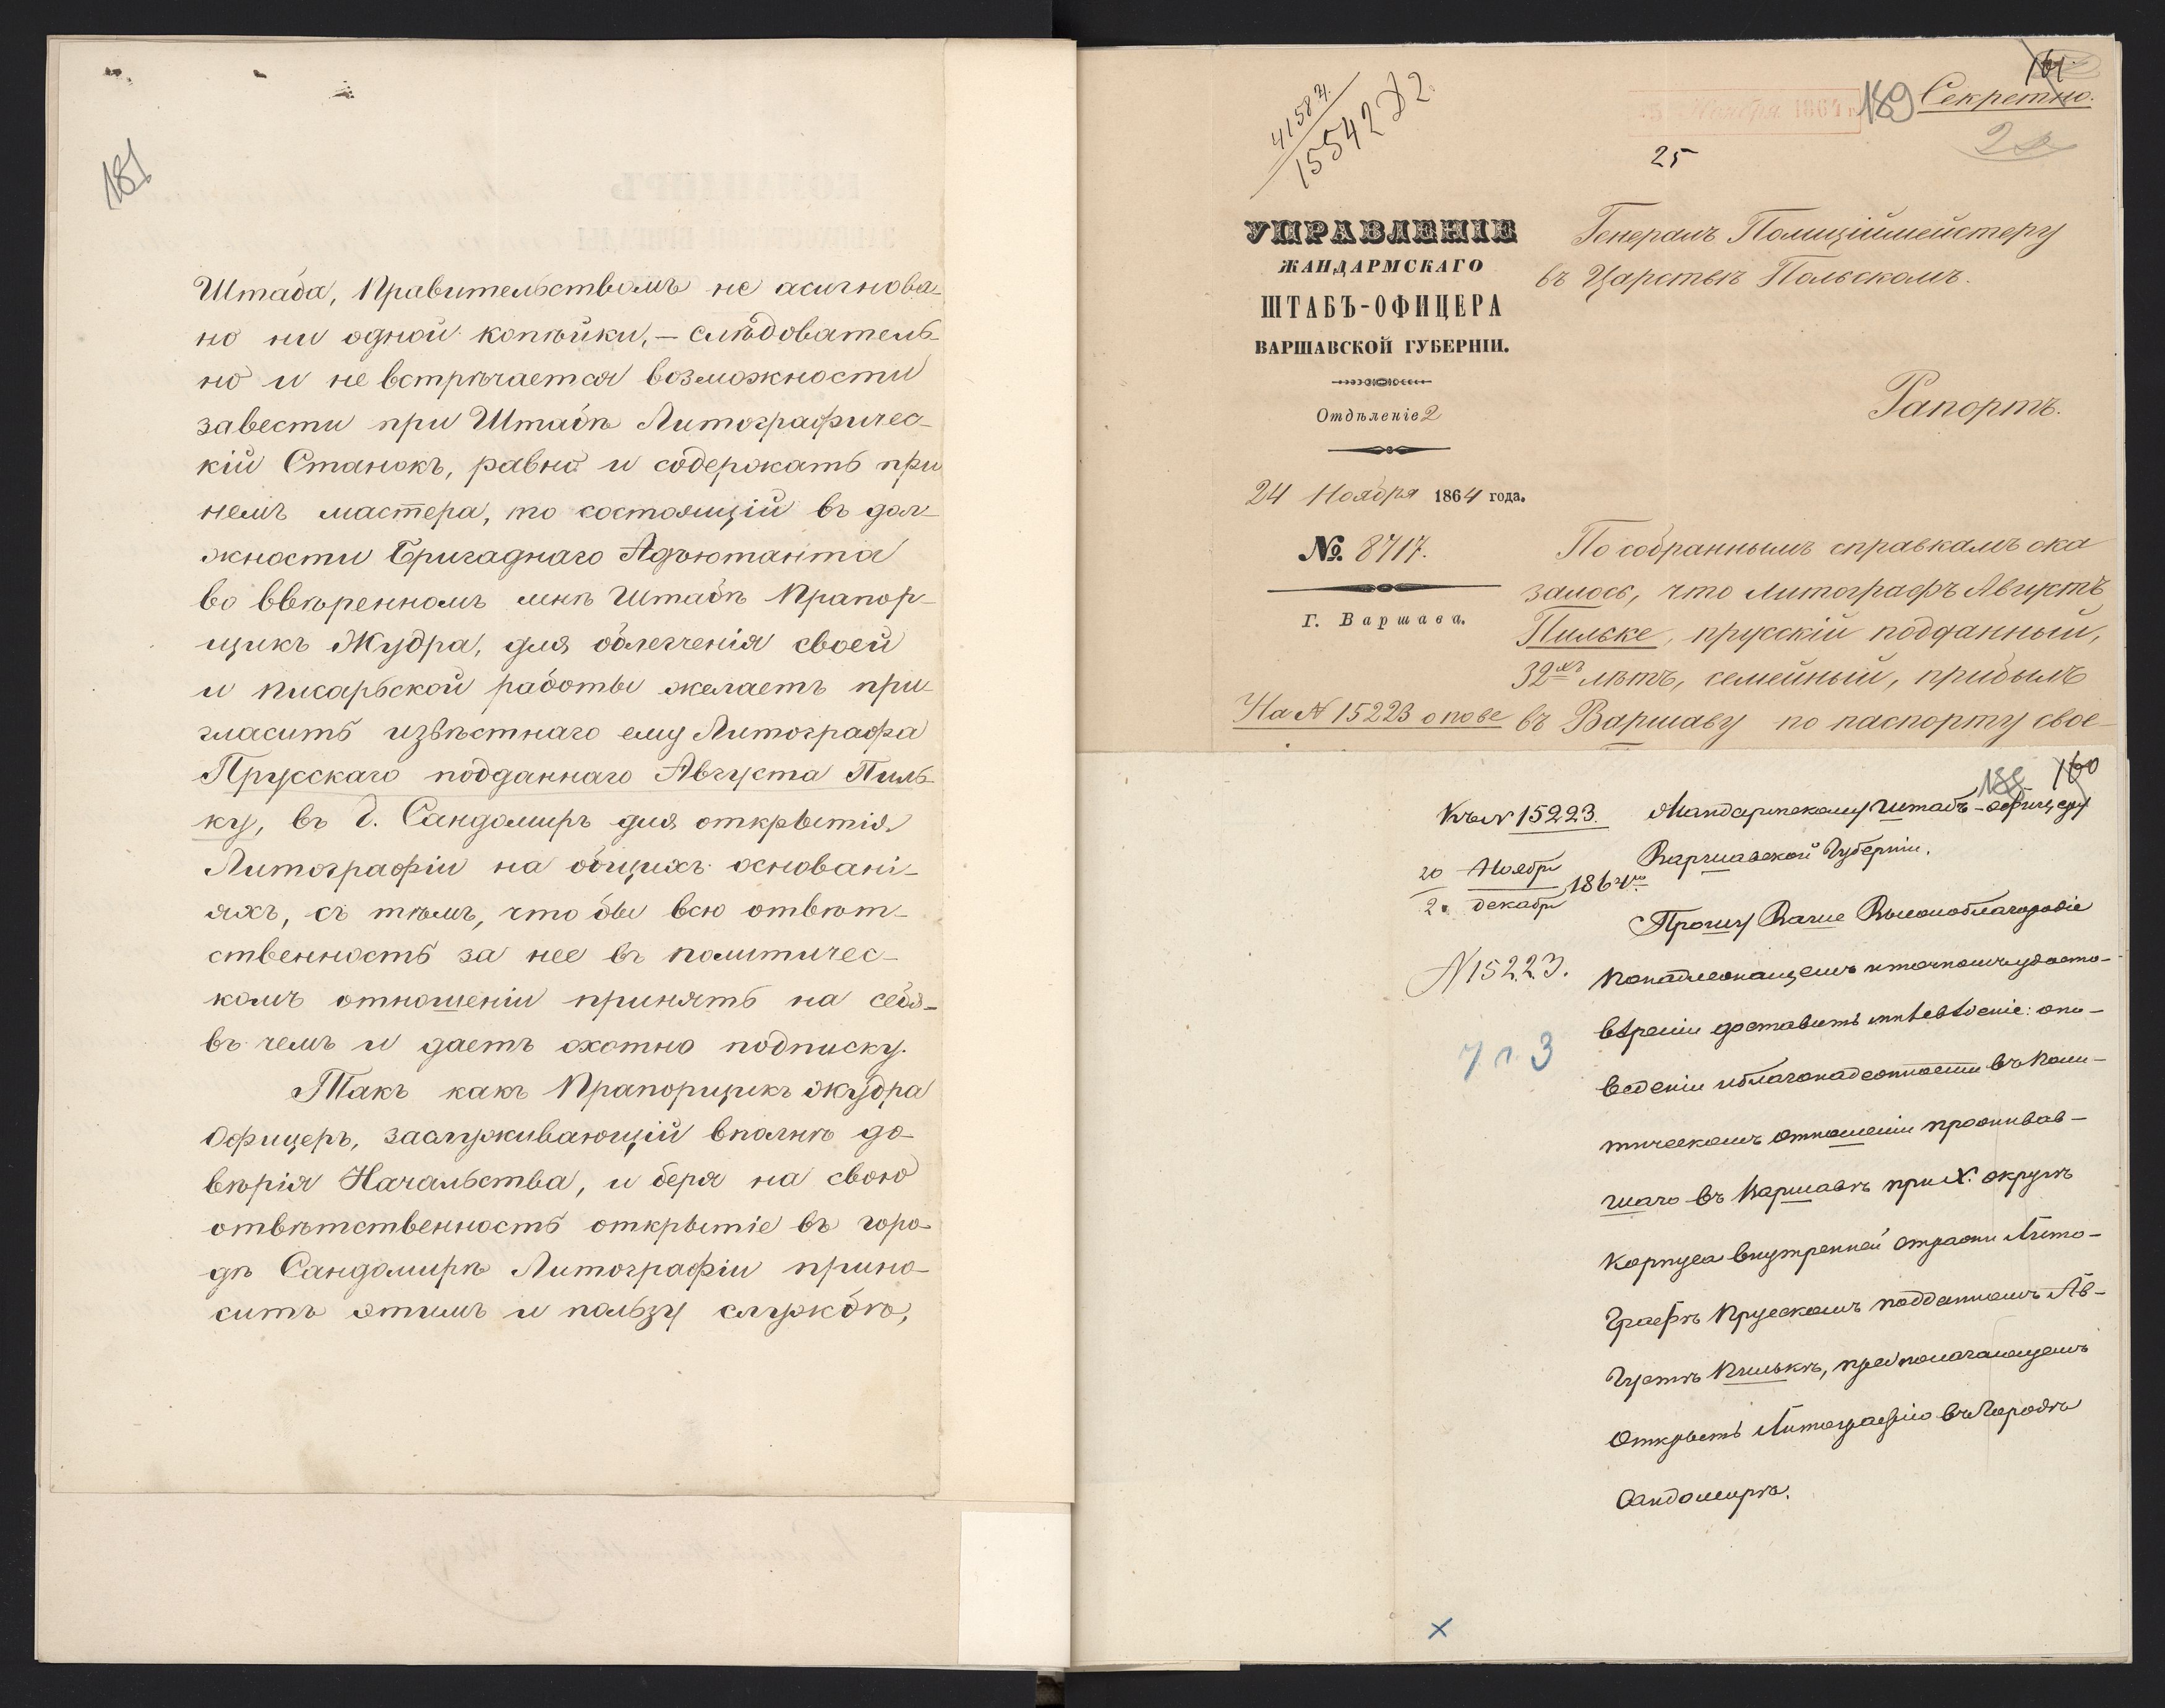 181
Штаба, Правительствомъ не асигнова-
но ни одной копѣйки, – слѣдователь-
но и не встрѣчается возможности
завести при Штабѣ Литографичес-
кій Станокъ, равно и содержать при
немъ мастера, то состоящій въ дол-
жности Бригаднаго Адъютанта
во ввѣренномъ мнѣ Штабѣ Прапор-
щикъ Жудра, для облегченія своей
и писарьской работы желаетъ при-
гласить извѣстнаго ему Литографа
Прусскаго подданнаго Августа Пиль-
ку, въ г. Сандомиръ для открытія
Литографіи на общихъ основані-
яхъ, съ тѣмъ, что бы всю отвѣт-
ственность за нее въ политичес-
комъ отношеніи принять на себя-
въ чемъ и даетъ охотно подписку.
Такъ какъ Прапорщикъ Жудра
Офицеръ, заслуживающій вполнѣ до-
вѣрія Начальства, и беря на свою
отвѣтственность открытіе въ горо-
дѣ Сандомирѣ Литографіи прино-
ситъ этимъ и пользу службѣ,
15542
189 Секретно.
Ноября 1864
25
УПРАВЛЕНІЕ
ЖАНДАРМСКАГО
ШТАБЪ-ОФИЦЕРА
ВАРШАВСКОЙ ГУБЕРНІИ.
Отдѣленіе 2
24 Ноября 1864 года.
№ 8717.
Г. Варшава.
На № 15223 о пове
Генералъ Полиціймейстеру
въ Царствѣ Польскомъ.
Рапортъ.
По собраннымъ справкамъ ока
залось, что Литографъ Августъ
Пильке, прусскій подданный,
32хъ лѣтъ, семейный, прибылъ
въ Варшаву по паспорту свое-
188 160
Къ № 15223.
20 Ноября
2 декабря 1864 го
№ 15223.
7 л. 3
Жандармскому Штабъ-офицеру
Варшавской Губерніи.
Прошу Ваше Высокоблагородіе
по надлежащемъ и точномъ удосто-
вѣреніи доставить мнѣ свѣденіе: о по-
веденіи и благонадежности въ поли-
тическомъ отношеніи проживав-
шаго въ Варшавѣ при X. округѣ
Корпуса внутренней стражи Лито-
графѣ Прусскомъ подданномъ Ав-
густѣ Пилькѣ, предполагающемъ
открыть Литографію въ Городѣ
Сандомирѣ.